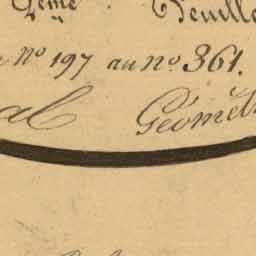 2ème Feuille
nº 197 au nº 361.
al Géomèt